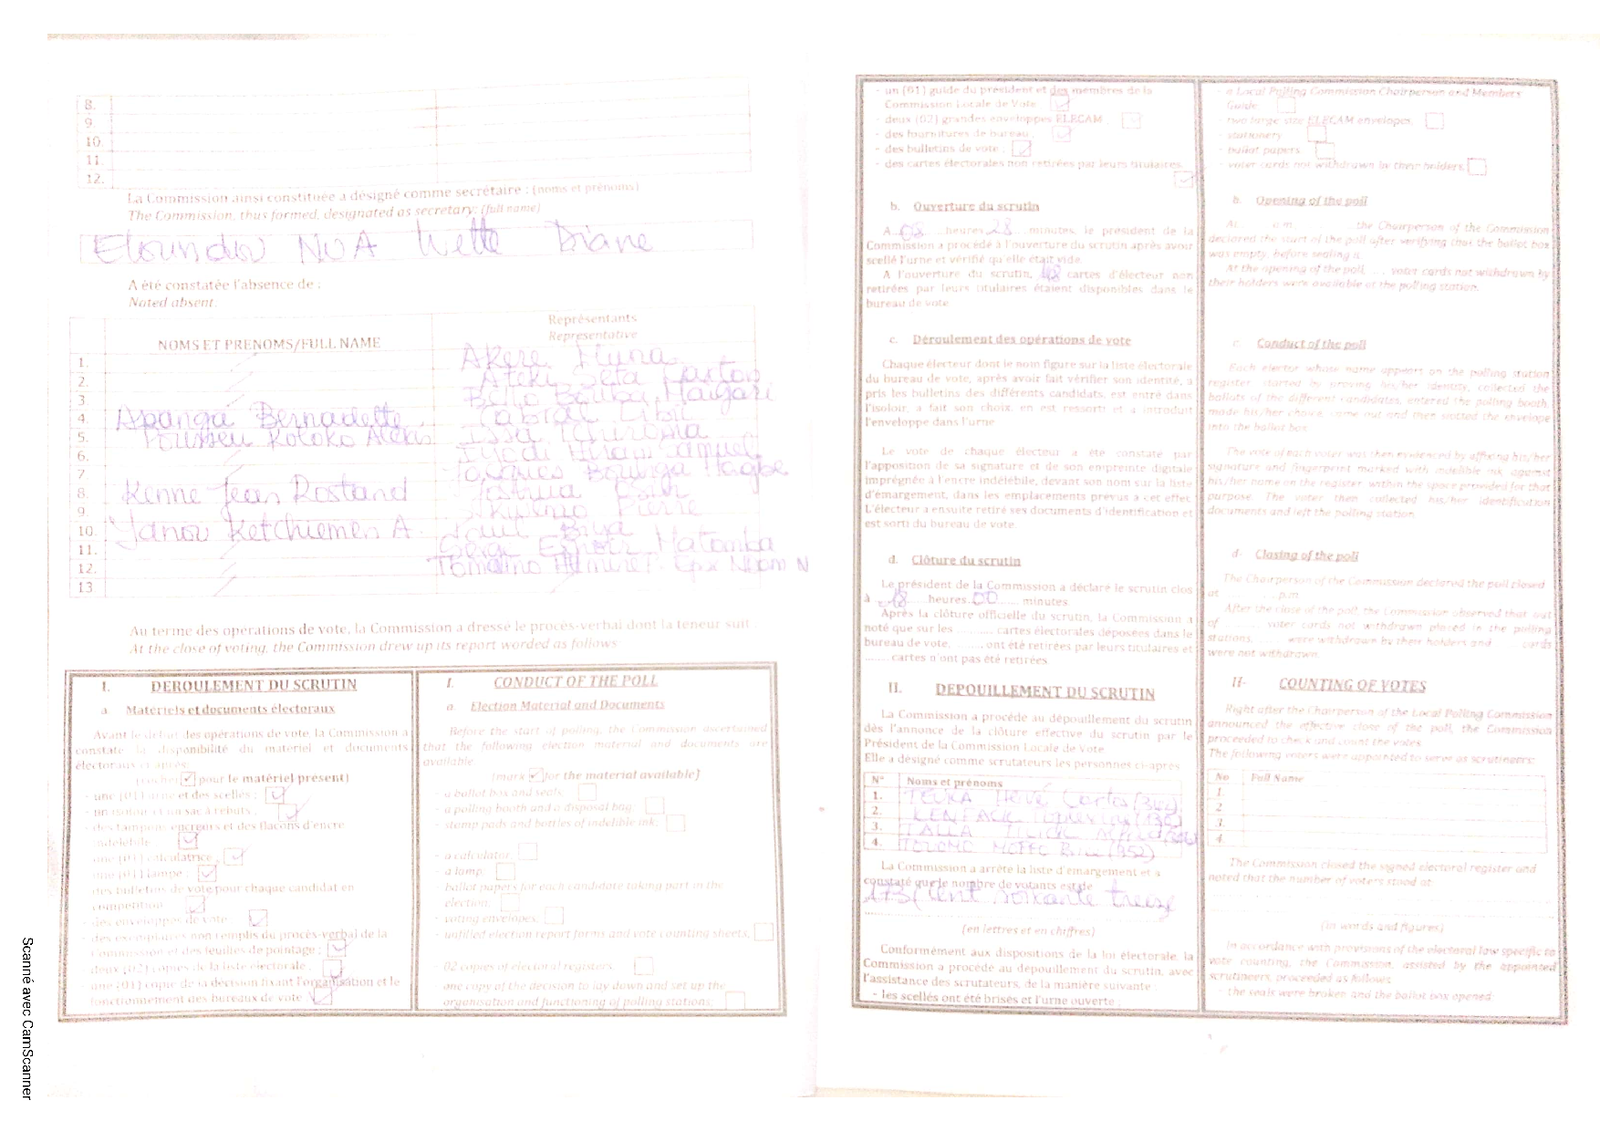 8.
9.
10.
11.
12.
La Commission ainsi constituée a désigné comme secrétaire : (noms et prénoms)
The Commission, thus formed, designated as secretary: (full name)
Eloundou NOA Yvette Diane
A été constatée l'absence de :
Noted absent:
Représentants
Representative
NOMS ET PRENOMS/FULL NAME
1. Akere Muna
2. Ateki Seta Caxton
3 Bello Bouba Maigari
4. Apanga Bernadette Cabral Libii
5. Kotoko Alexis Issa Tchiroma
6. Iyodi Hiram Samuel
7 Jacques Bouhga Hagbe
8. Kenne Jean Rostand Joshua Osih
9. Pierre
10. Yanou Ketchiemen A. Paul Biya
11. Serge Espoir Matomba
12. Tomaino Hermine Epse Ndam N
13
Au terme des operations de vote, la Commission a dressé le procès-verbal dont la teneur suit
At the close of voting, the Commission drew up its report worded as follows
I. DEROULEMENT DU SCRUTIN
a Matériels et documents électoraux
Avant le début des opérations de vote, la Commission a
constaté la disponibilité du matériel et documents
électoraux ci-après:
(cocher pour le matériel présent)
- une (01) urne et des scellés ;
- un isoloir et un sac à rebuts ;
- des tampons encreurs et des flacons d'encre
indélébile
- une (01) calculatrice ;
- une (01) lampe ;
- des bulletins de vote pour chaque candidat en
compétition
- des enveloppes de vote
- des exemplaires non remplis du procès-verbal de la
Commission et des feuilles de pointage ;
- deux (02) copies de la liste électorale ;
- une (01) copie de la décision fixant l'organisation et le
fonctionnement des bureaux de vote
I. CONDUCT OF THE POLL
a Election Material and Documents
Before the start of polling, the Commission ascertained
that the following election material and documents are
available.
(mark for the material available)
- a ballot box and seals
- a polling booth and a disposal bag
- stamp pads and bottles of indelible ink.
- a calculator
- a lamp:
- ballot papers for each candidate taking part in the
election.
- voting envelopes.
- unfilled election report forms and vote counting sheets.
- 02 copies of electoral registers
- one copy of the decision to lay down and set up the
organisation and functioning of polling stations.
- un (01) guide du président et des membres de la
Commission Locale de Vote
- deux (02) grandes enveloppes ELECAM
- des fournitures de bureau ;
- des bulletins de vote ;
- des cartes électorales non retirées par leurs titulaires
b. Ouverture du scrutin
A 08 heures 28 minutes, le président de la
Commission a procédé à l'ouverture du scrutin après avoir
scellé l'urne et vérifié qu'elle était vide.
A l'ouverture du scrutin, cartes d'électeur non
retirées par leurs titulaires étaient disponibles dans le
bureau de vote
c. Déroulement des opérations de vote
Chaque électeur dont le nom figure sur la liste électorale
du bureau de vote, après avoir fait vérifier son identité, a
pris les bulletins des différents candidats, est entré dans
l'isoloir, a fait son choix, en est ressorti et a introduit
l'enveloppe dans l'urne
Le vote de chaque électeur a été constaté par
l'apposition de sa signature et de son empreinte digitale
imprégnée à l'encre indélébile, devant son nom sur la liste
d'émargement, dans les emplacements prévus à cet effet.
L'électeur a ensuite retiré ses documents d'identification et
est sorti du bureau de vote
d. Clôture du scrutin
Le président de la Commission a déclaré le scrutin clos
à 18 heures 00 minutes
Après la clôture officielle du scrutin, la Commission a
noté que sur les ......... cartes électorales déposées dans le
bureau de vote, ........ ont été retirées par leurs titulaires et
...... cartes n'ont pas été retirées
II. DEPOUILLEMENT DU SCRUTIN
La Commission a procédé au dépouillement du scrutin
dès l'annonce de la clôture effective du scrutin par le
Président de la Commission Locale de Vote
Elle a désigné comme scrutateurs les personnes ci-après
N° Noms et prénoms
1. Hervé Carlos
2. KENFACK
3. TALLA
4.
La Commission a arrêté la liste d'émargement et a
constaté que le nombre de votants est de
173 (cent soixante treize
(en lettres et en chiffres)
Conformément aux dispositions de la loi électorale, la
Commission a procédé au dépouillement du scrutin, avec
l'assistance des scrutateurs, de la manière suivante :
- les scellés ont été brisés et l'urne ouverte ;
- a Local Polling Commission Chairperson and Members
Guide
- two large size ELECAM envelopes.
- stationery
- ballot papers.
- voter cards not withdrawn by their holders.
b. Opening of the poll
At a.m the Chairperson of the Commission
declared the start of the poll after verifying that the ballot box
was empty, before sealing it.
At the opening of the poll, .... voter cards not withdrawn by
their holders were available at the polling station.
c. Conduct of the poll
Each elector whose name appears on the polling station
register started by proving his/her identity, collected the
ballots of the different candidates, entered the polling booth,
made his/her choice, came out and then slotted the envelope
into the ballot box
The vote of each voter was then evidenced by affixing his/her
signature and fingerprint marked with indelible ink, against
his/her name on the register, within the space provided for that
purpose. The voter then collected his/her identification
documents and left the polling station.
d- Closing of the poll
The Chairperson of the Commission declared the poll closed
at p.m
After the close of the poll, the Commission observed that out
of ........ voter cards not withdrawn placed in the polling
stations, ...... were withdrawn by their holders and cards
were not withdrawn.
II- COUNTING OF VOTES
Right after the Chairperson of the Local Polling Commission
announced the effective close of the poll, the Commission
proceeded to check and count the votes
The following voters were appointed to serve as scrutineers:
No Full Name
1
2
3.
4
The Commission closed the signed electoral register and
noted that the number of voters stood at:
(in words and figures)
In accordance with provisions of the electoral law specific to
vote counting, the Commission, assisted by the appointed
scrutineers, proceeded as follows
- the seals were broken and the ballot box opened:
Scanné avec CamScanner